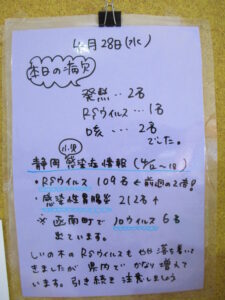 4月28日(水)
本日の病欠
発熱…2名
RSウイルス…1名
咳…2名
でした。
小児
静岡 感染症情報(4/12〜18)
・RSウイルス 109名 ← 前週の2倍!
・感染性胃腸炎 212名
※函南町で RSウイルス 6名
出ています。
しいの木のRSウイルスもやや落ち着いて
きましたが 県内で かなり増えて
います。引き続き注意しましょう